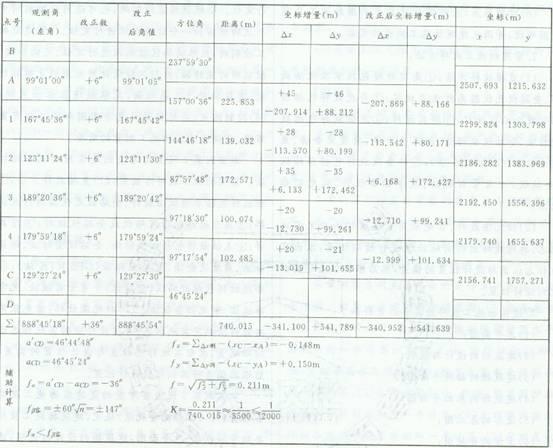 点号 观测角（左角） 改正数 改正后角值 方位角 距离(m) 坐标增量(m) 改正后坐标增量(m) 坐标(m)
Δx Δy Δx Δy x y
B
237°59′30″
A 99°01′00″ +6″ 99°01′05″ 2507,693 1215,632
157°00′36″ 225,853 +45 −46 −207,869 +88,166
−207,914 +88,212
1 167°45′36″ +6″ 167°45′42″ 2299,824 1303,798
144°46′18″ 139,032 −28 −28 −113,542 +80,171
−113,570 +80,199
2 123°11′24″ +6″ 123°11′30″ 2186,282 1383,969
87°57′48″ 172,571 +35 −35 +6,168 +172,427
+6,133 +172,462
3 189°20′36″ +6″ 189°20′42″ 2192,450 1556,396
97°18′30″ 100,074 +20 −20 −12,710 +99,241
−12,730 +99,261
4 179°59′18″ +6″ 179°59′24″ 2179,740 1655,637
97°17′54″ 102,485 +20 −21 −12,999 +101,634
−13,019 +101,655
C 129°27′24″ +6″ 129°27′30″ 2156,741 1757,271
46°45′24″
D
Σ 888°45′18″ +36″ 888°45′54″ 740,015 −341,100 +541,789 −340,952 +541,639
辅助计算
a′CD=46°44′48″
aCD=46°45′24″
fα=a′CD−aCD=−36″
fβ容=±60″√n=±147″
fα<fβ容
fx=ΣΔx测−(xC−xA)=−0,148m
fy=ΣΔy测−(yC−yA)=+0,150m
f=√fx²+fy²=0,211m
K=0,211/740,015≈1/3500≤1/2000